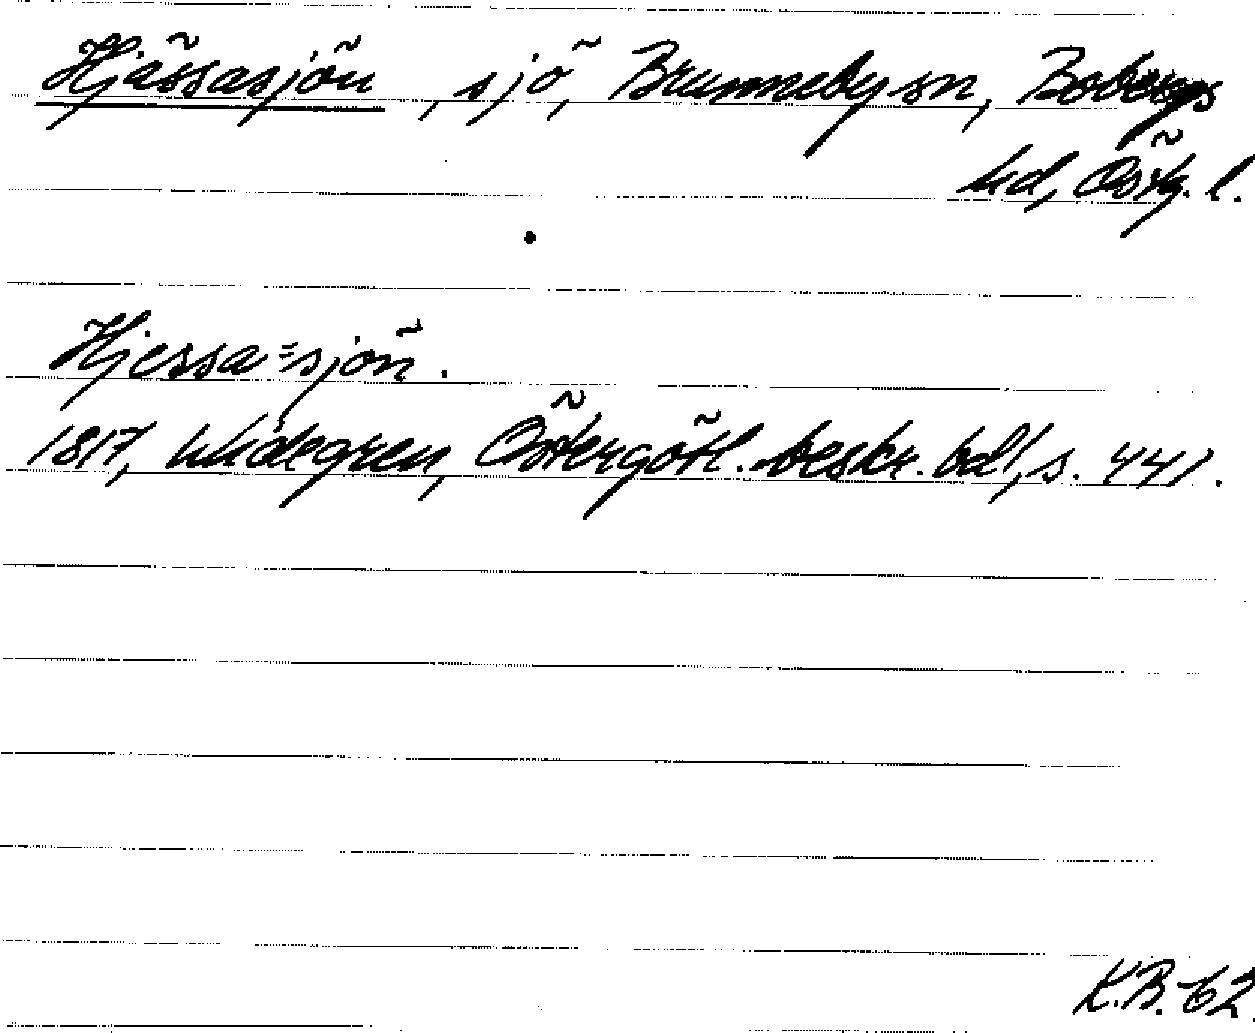 Hjässasjön, sjö, Brunneby sn, Bobergs
hd, Östg. l.
Hjessa=sjön.
1817, Widegren, Östergötl. beskr. bd 1, s. 441.
K.B.-62.